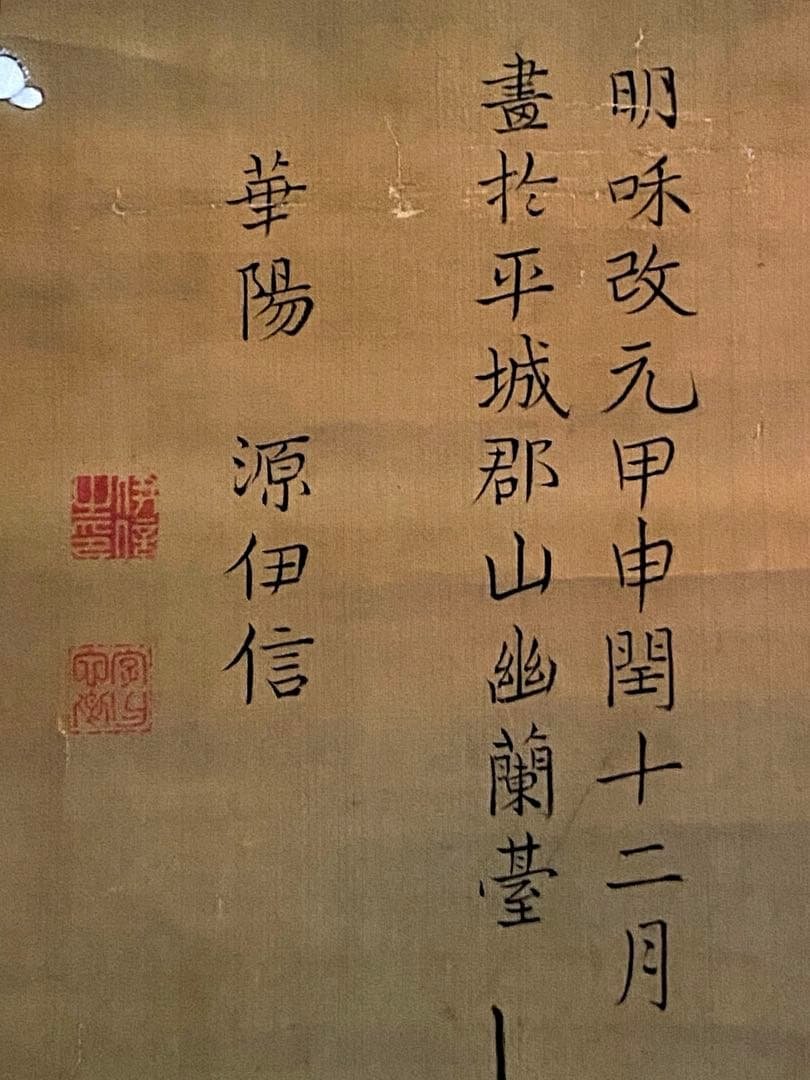 明和改元甲申閏十二月
畫於平城郡山幽蘭臺
華陽 源伊信
伊信之印